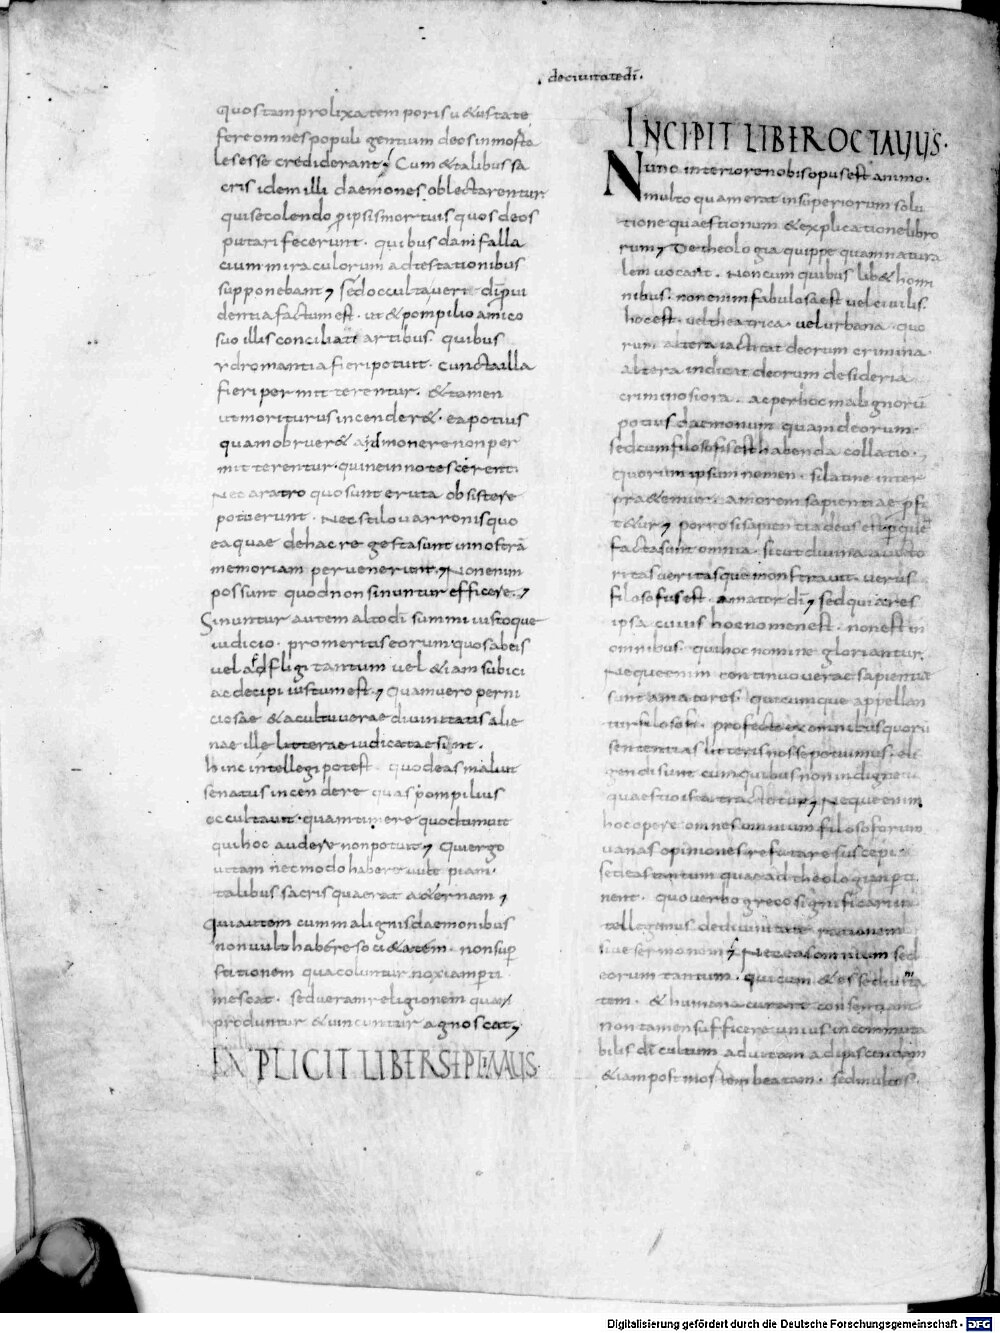 de ciuitate dī.
quos tam prolixa temporis uetustate
fere omnes populi gentium deos inmorta
les esse crediderant; Cum & talibus sa
cris idem illi daemones oblectarentur
qui se colendos pro ipsis mortuis quos deos
putari fecerunt. quibusdam falla
cium miraculorum adtestationibus
supponebant; sed occulta ueri dī proui
dentia factum est. ut & pompilio amico
suo illis conciliati artibus. quibus
ydromantia fieri potuit. cuncta illa
fieri permitterentur. & tamen
ut moriturus incender&. ea potius
quam obruer& admonere non per
mitterentur. qui ne innotescerent
Nec aratro quo sunt eruta obsistere
potuerunt. Nec stilo uarronis quo
ea quae de hac re gesta sunt in nostrā
memoriam peruenerunt; Non enim
possunt quod non sinuntur efficere;
Sinuntur autem alto dī summi iustoque
iudicio. pro meritis eorum quos ab eis
uel adfligi tantum uel &iam subici
ac decipi iustum est; Quam uero perni
ciosae & a cultu uerae diuinitatis alie
nae ille litterae iudicatae sunt.
hinc intellegi potest. quod eas maluit
senatus incendere quas pompilius
occultauit. quam timere quod timuit
qui hoc audere non potuit; Qui ergo
uitam nec modo habere uult piam.
talibus sacris quaerat a&ernam;
Qui autem cum malignis daemonibus
non uult habere soci&atem. non super
stitionem qua coluntur noxiam perti
mescat. sed ueram religionem qua
produntur & uincuntur agnoscat;
EXPLICIT LIBER SEPTIMUS.
INCIPIT LIBER OCTAUUS.
Nunc intentiore nobis opus est animo.
multo quam erat in superiorum solu
tione quaestionum & explicatione libro
rum; De theologia quippe quam natura
lem uocant. Non cum quibus lib& homi
nibus. non enim fabulosa est uel ciuilis.
hoc est. uel theatrica. uel urbana. quo
rum altera iactitat deorum crimina
altera indicat deorum desideria
criminosiora. ac per hoc malignorū
potius daemonum quam deorum.
sed cum filosofis est habenda collatio.
quorum ipsum nomen. si latine inter
pra&emur. amorem sapientiae profi
t&ur; porro si sapientia deus est per quē
facta sunt omnia. sicut diuina aucto
ritas ueritasque monstrauit. uerus
filosofus est. amator dī; sed quia res
ipsa cuius hoc nomen est. non est in
omnibus. qui hoc nomine gloriantur.
Neque enim continuo uerae sapientiae
sunt amatores. quicumque appellan
tur filosofi. profecto ex omnibus quorū
sententias litteris nosse potuimus. eli
gendi sunt cum quibus non indigne
quaestio ista tractetur; Neque enim
hoc opere omnes omnium filosoforum
uanas opiniones refutare suscepi.
sed eas tantum quae ad theologian perti
nent. quo uerbo greco significari in
tellegimus de diuinitate rationem
siue sermonem; Nec eas omnium sed
eorum tantum. qui cum & esse diuinita
tem. & humana curare consentiant
non tamen sufficere unius incommuta
bilis dī cultum ad uitam adipiscendam
&iam post mortem beatam. sed multos.
Digitalisierung gefördert durch die Deutsche Forschungsgemeinschaft - DFG